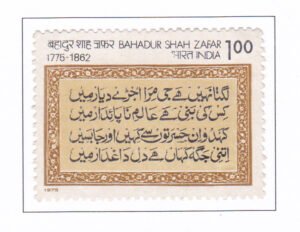 बहादुर शाह ज़फ़र BAHADUR SHAH ZAFAR
1775-1862 भारत INDIA 1.00
لگتا نہیں ہے جی مرا اجڑے دیار میں
کس کی بنی ہے عالم ناپائدار میں
کہدو ان حسرتوں سے کہیں اور جا بسیں
اتنی جگہ کہاں ہے دل داغدار میں
1975